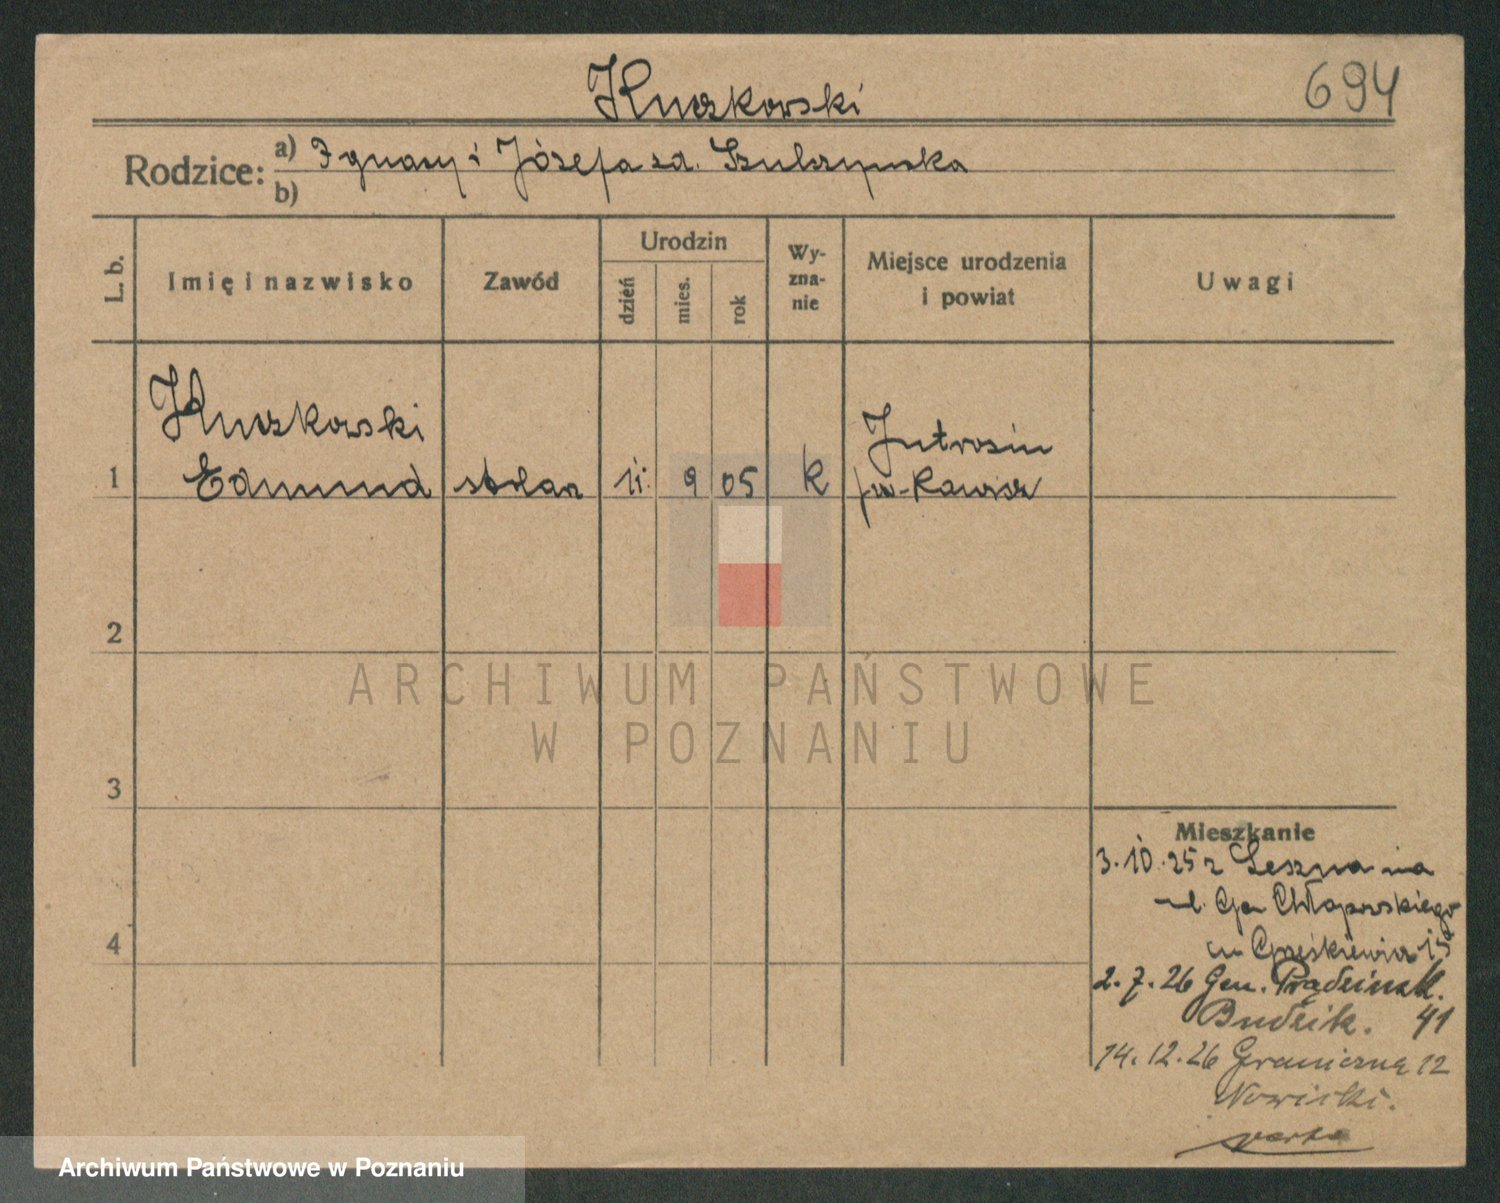 694
Kuczkowski
Rodzice: a) Ignacy i Józefa zd. Szulczyńska
b)
L. b.
Imię i nazwisko
Zawód
Urodzin
dzień
mies.
rok
Wy-
zna-
nie
Miejsce urodzenia
i powiat
Uwagi
Kuczkowski
Jutrosin
1 Edmund stolarz 11. 9 05 k pow. Rawicz
2
3
4
Mieszkanie
3.10.25 z Leszna na
ul. Gen Chłapowskiego
15
2.7.26 Gen. Prądzińsk.
Budzik. 41
14.12.26 Graniczna 12
Nowicki.
ARCHIWUM PAŃSTWOWE
W POZNANIU
Archiwum Państwowe w Poznaniu